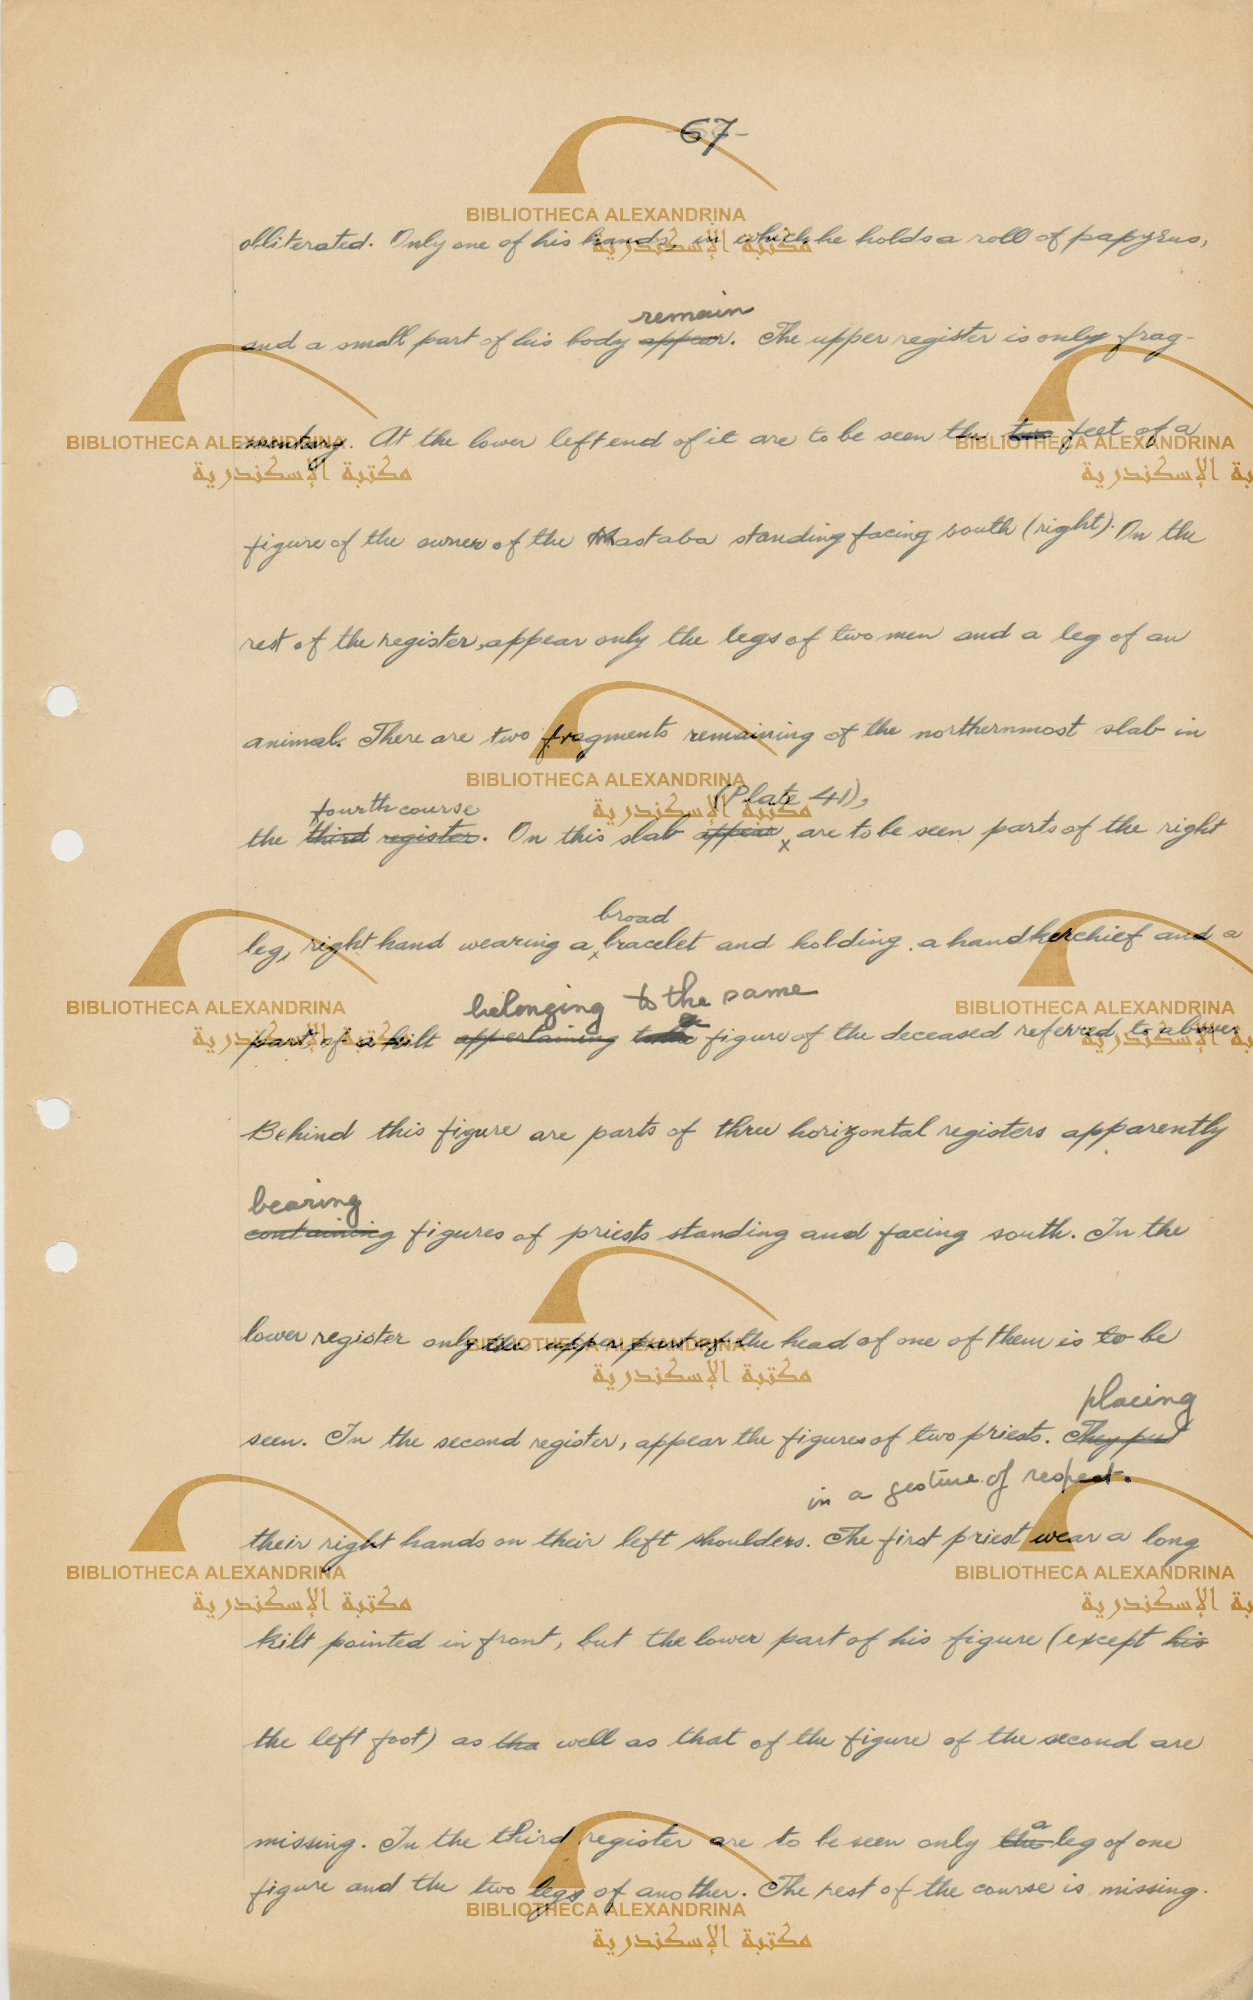 67-
olliterated. Only one of his hands, in which he holds a roll of papyrus,
remain
and a small part of his body appear. The upper register is only frag-
mentary. At the lower left end of it are to be seen the two feet of a
figure of the owner of the Mastaba standing facing south (right). On the
rest of the register, appear only the legs of two men and a leg of an
animal. There are two fragments remaining of the northernmost slab in
fourth course (Plate 41),
the third register. On this slab appear x are to be seen parts of the right
broad
leg, right hand wearing a x bracelet and holding a handkerchief and a
belonging to the same
part of a kilt appertaining to the figure of the deceased referred to above.
Behind this figure are parts of three horizontal registers apparently
bearing
containing figures of priests standing and facing south. In the
lower register only the upper part of the head of one of them is to be
placing
seen. In the second register, appear the figures of two priests. They put
in a gesture of respect.
their right hands on their left shoulders. The first priest wear a long
kilt pointed in front, but the lower part of his figure (except his
the left foot) as tha well as that of the figure of the second are
a
missing. In the third register are to be seen only the leg of one
figure and the two legs of another. The rest of the course is missing.
BIBLIOTHECA ALEXANDRINA
مكتبة الإسكندرية
BIBLIOTHECA ALEXANDRINA
مكتبة الإسكندرية
BIBLIOTHECA ALEXANDRINA
بة الإسكندرية
BIBLIOTHECA ALEXANDRINA
مكتبة الإسكندرية
BIBLIOTHECA ALEXANDRINA
مكتبة الإسكندرية
BIBLIOTHECA ALEXANDRINA
بة الإسكندرية
BIBLIOTHECA ALEXANDRINA
مكتبة الإسكندرية
BIBLIOTHECA ALEXANDRINA
مكتبة الإسكندرية
BIBLIOTHECA ALEXANDRINA
بة الإسكندرية
BIBLIOTHECA ALEXANDRINA
مكتبة الإسكندرية